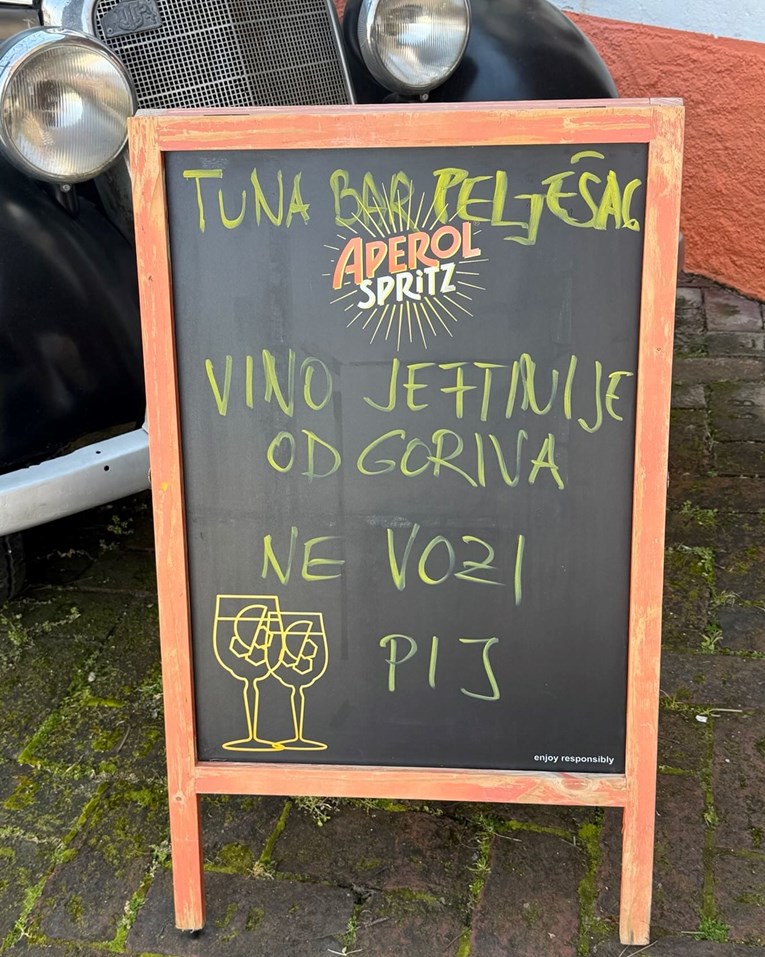 TUNA BAR PELJEŠAC
APEROL
SPRiTZ
VINO JEFTINIJE
OD GORIVA
NE VOZI
PIJ
enjoy responsibly